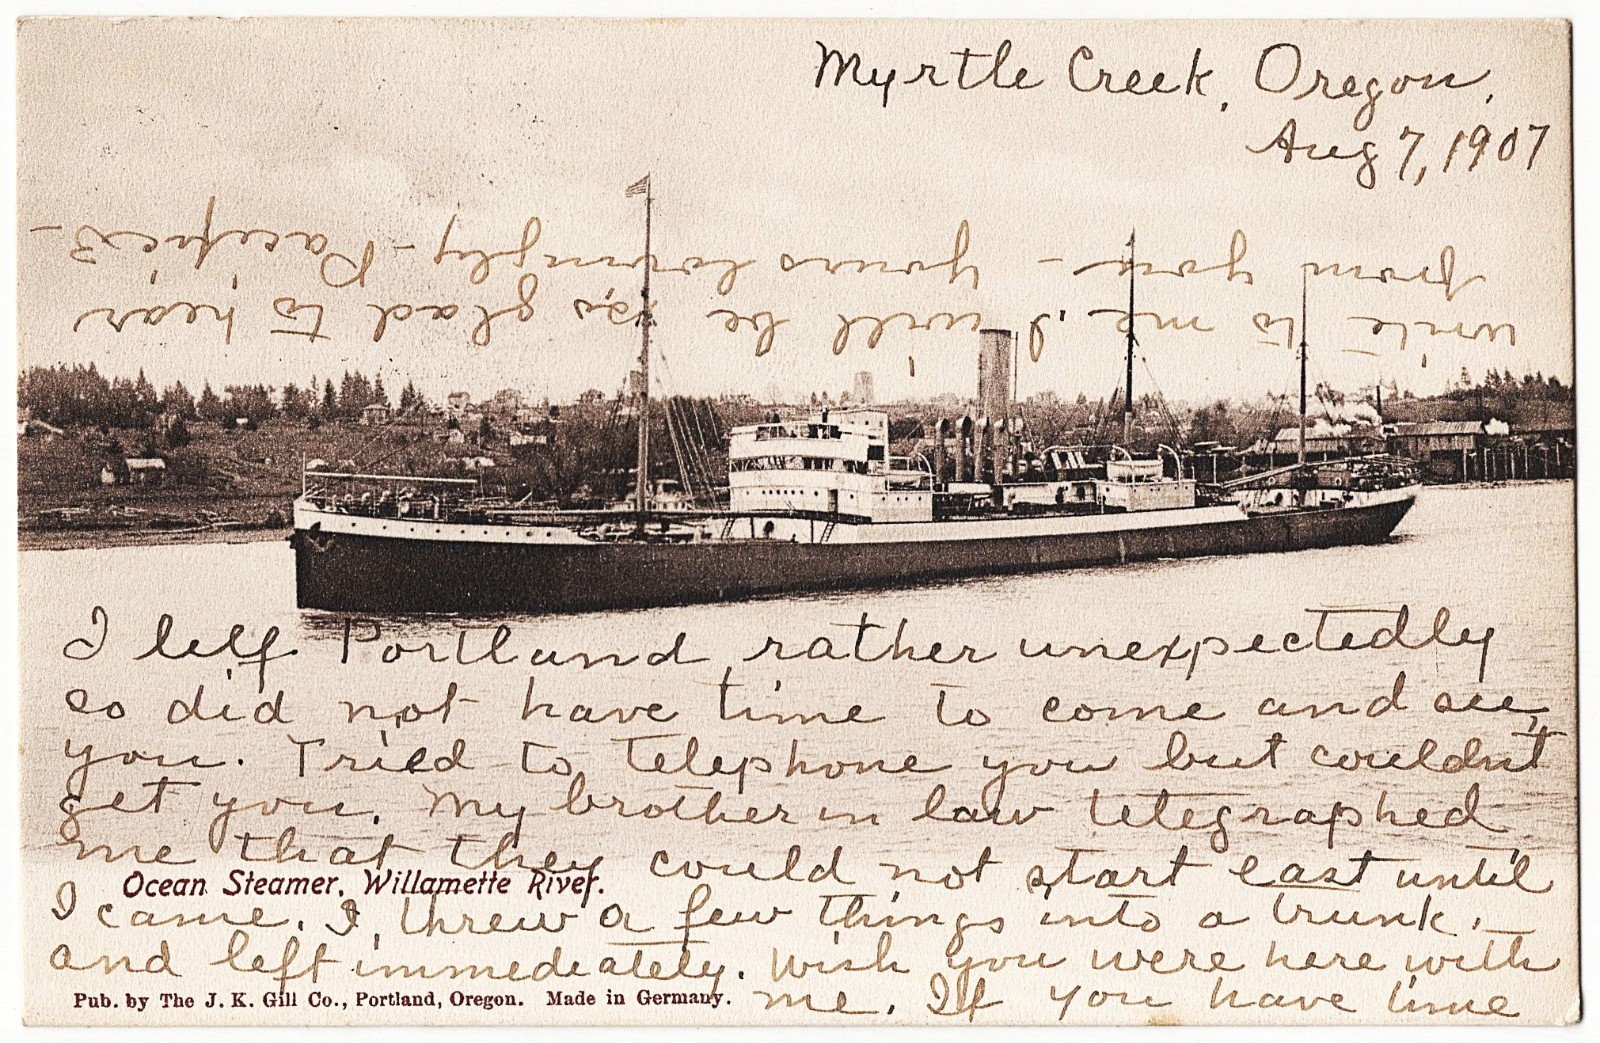 Myrtle Creek, Oregon,
Aug 7, 1907
I left Portland rather unexpectedly
so did not have time to come and see
you. Tried to telephone you but couldn't
get you. My brother in law telegraphed
me that they could not start east until
Ocean Steamer, Willamette River.
I came. I threw a few things into a trunk
and left immediately. Wish you were here with
Pub. by The J. K. Gill Co., Portland, Oregon. Made in Germany.
me. If you have time
write to me. I will be so glad to hear
from you - yours lovingly -